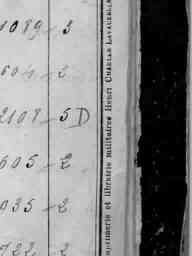 1089 - 3
604 - 2
2108 - 5 D
605 - 2
935 - 2
722 2
imprimerie et librairie militaires Henri CHARLES-LAVAUZELLE